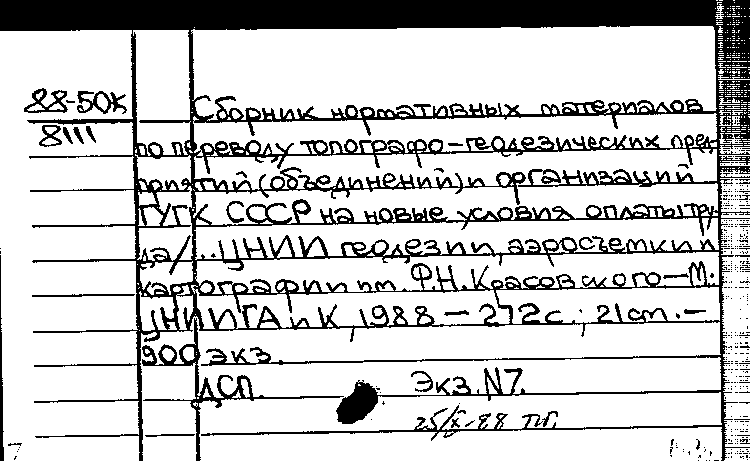 88-50К
8111
Сборник нормативных материалов
по переводу топографо-геодезических пред-
приятий (объединений) и организаций
ГУГК СССР на новые условия оплаты тру-
да/...ЦНИИ геодезии, аэросъемки и
картографии им. Ф.Н. Красовского—М.:
ЦНИИГАиК, 1988 — 272с.; 21см.—
900 экз.
ДСП. Экз. N7.
25/X-88